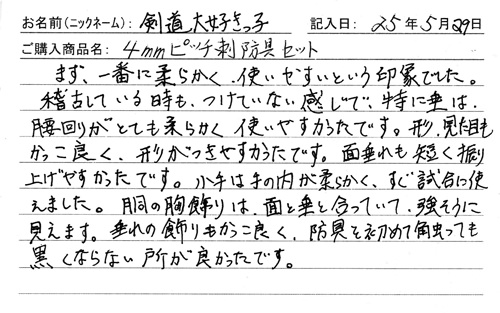 お名前(ニックネーム): 剣道大好きっ子 記入日: 25年5月29日
ご購入商品名: 4mmピッチ刺防具セット
まず、一番に柔らかく、使いやすいという印象でした。
稽古している時も、つけていない感じで、特に垂は、
腰回りがとても柔らかく使いやすかったです。形、見た目も
かっこ良く、形がつきやすかったです。面垂れも短く振り
上げやすかったです。小手は手の内が柔らかく、すぐ試合に使
えました。胴の胸飾りは、面と垂と合っていて、強そうに
見えます。垂れの飾りもかっこ良く、防具を初めて触っても
黒くならない所が良かったです。